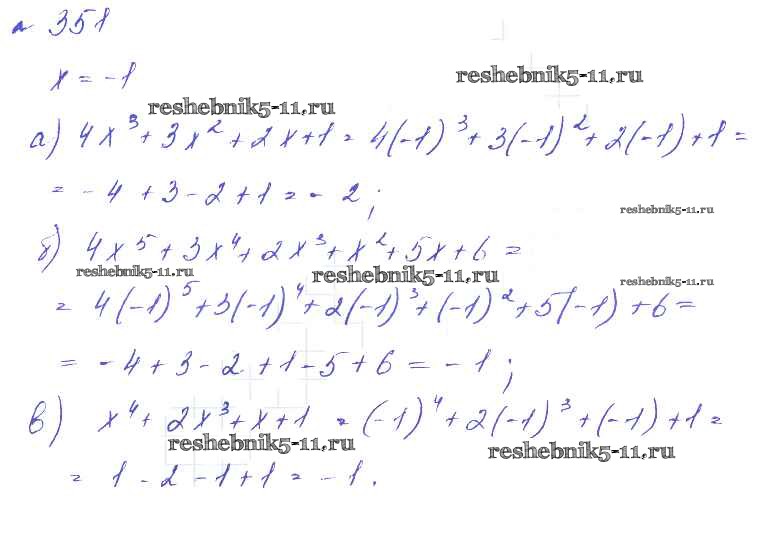 № 351
x = -1
reshebnik5-11.ru
reshebnik5-11.ru
а) 4x³ + 3x² + 2x + 1 = 4(-1)³ + 3(-1)² + 2(-1) + 1 =
= - 4 + 3 - 2 + 1 = - 2 ;
reshebnik5-11.ru
б) 4x⁵ + 3x⁴ + 2x³ + x² + 5x + 6 =
reshebnik5-11.ru
reshebnik5-11.ru
reshebnik5-11.ru
= 4(-1)⁵ + 3(-1)⁴ + 2(-1)³ + (-1)² + 5(-1) + 6 =
= - 4 + 3 - 2 + 1 - 5 + 6 = - 1 ;
в) x⁴ + 2x³ + x + 1 = (-1)⁴ + 2(-1)³ + (-1) + 1 =
reshebnik5-11.ru
reshebnik5-11.ru
= 1 - 2 - 1 + 1 = - 1 .